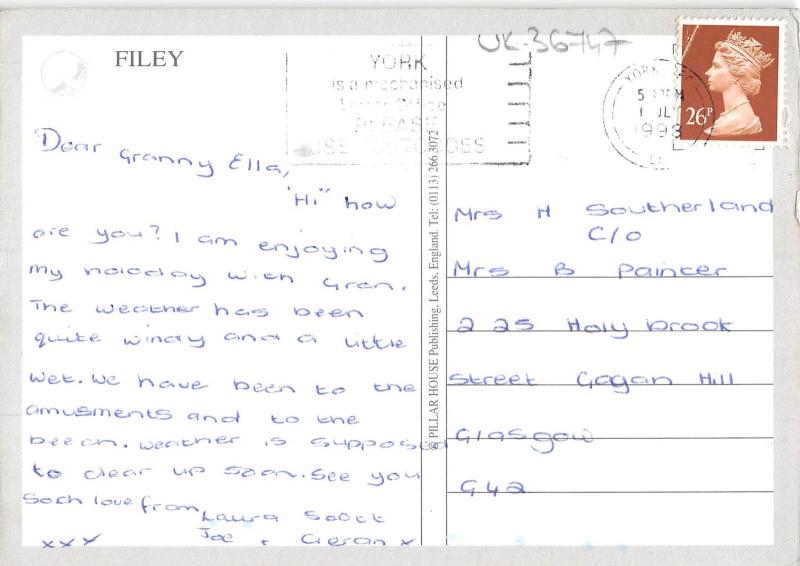 FILEY
UK-36747
YORK
is a mechanised
Office
PLEASE
USE POSTCODES
YORK
1 JLY
1998
26P
Dear Granny Ella,
"Hi" how
are you? I am enjoying
my holoday with Gran.
The weather has been
quite windy and a little
wet. We have been to the
amusments and to the
beech. Weather is supposed
to clear up soon. See you
Soon love from
Laura Scott
xxx Joe + Cieran x
© PILLAR HOUSE Publishing, Leeds, England. Tel: (0113) 266 3072
Mrs H Southerland
C/O
Mrs B Painter
225 Holy brook
Street Gogan Hill
Glasgow
G42